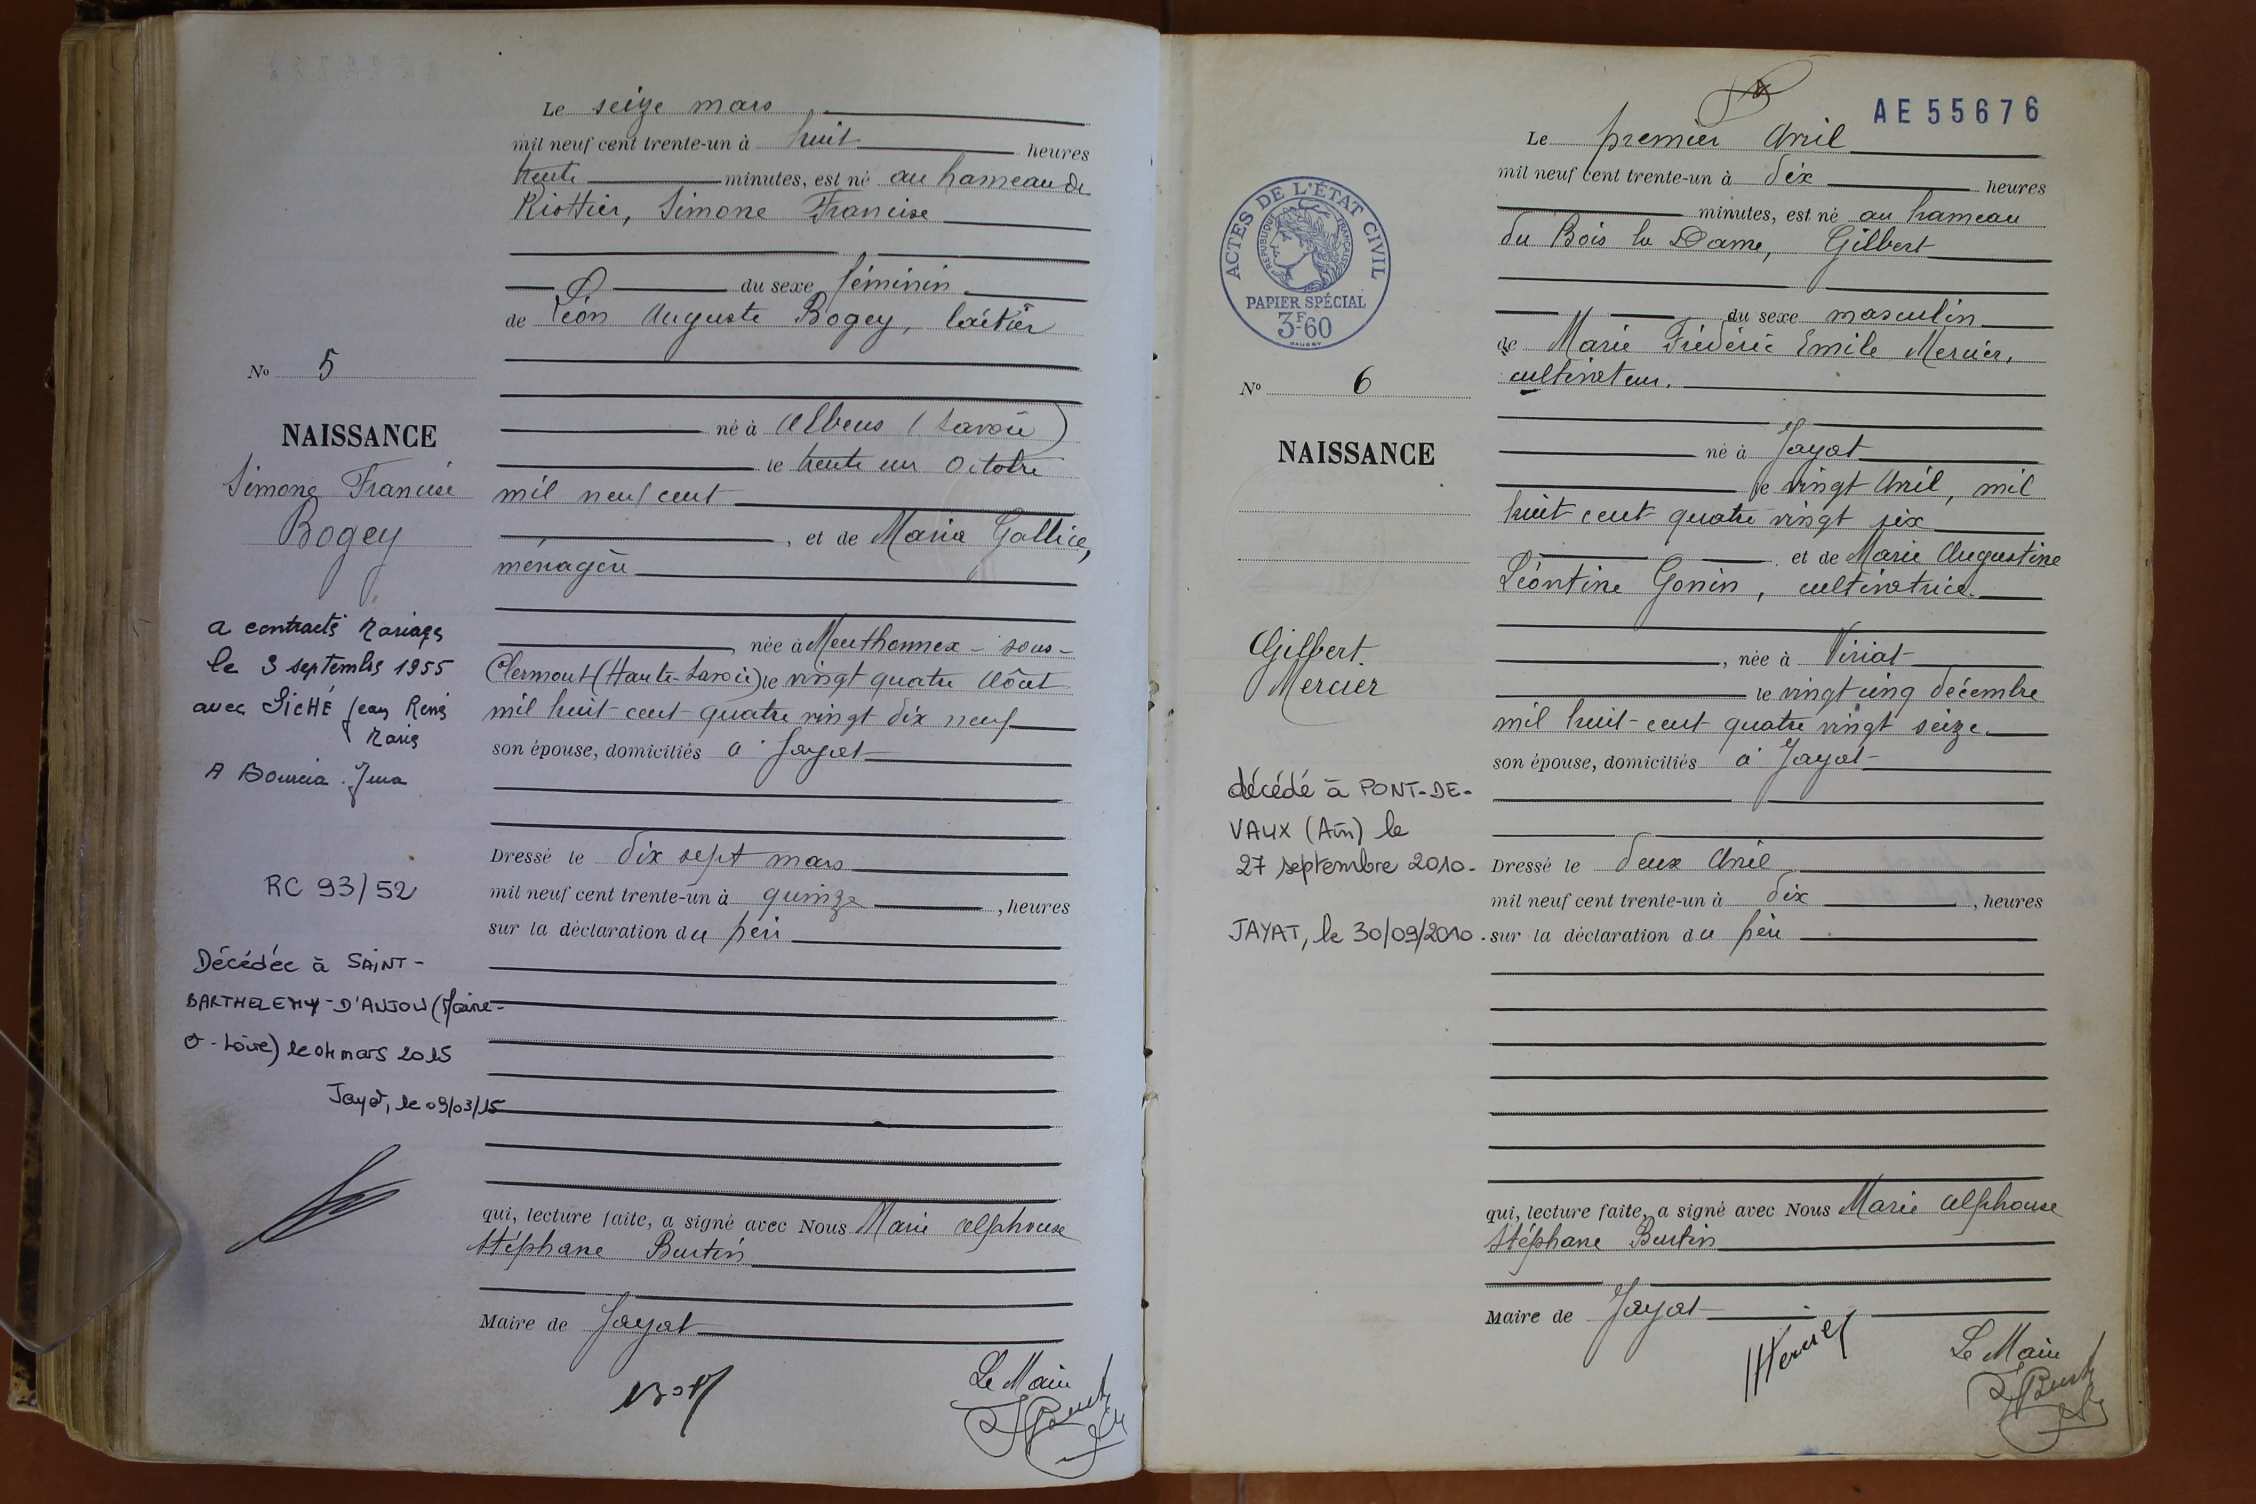 Le seize mars
mil neuf cent trente-un à huit heures
trente minutes, est né au hameau de
Riottier, Simone Francise
du sexe féminin
de Léon Auguste Bogey, laitier
No 5
NAISSANCE
Simone Francise
Bogey
né à Albens (Savoie)
le trente un Octobre
mil neuf cent
, et de Maria Gallice,
ménagère
née à Menthonnex-sous-
Clermont (Haute-Savoie) le vingt quatre Août
mil huit cent quatre vingt dix neuf
son épouse, domiciliés à Jayat
a contracté Mariage
le 3 septembre 1955
avec SICHÉ Jean René
Marie
A Bourcia Jura
RC 93/52
Décédée à SAINT-
BARTHELEMY-D'ANJOU (Maine-
&-Loire) le 04 mars 2015
Jayat, le 09/03/15
Dressé le dix sept mars
mil neuf cent trente-un à quinze , heures
sur la déclaration du père
qui, lecture faite, a signé avec Nous Marie Alphonse
Stéphane Burtin
Maire de Jayat
Le Maire
AE55676
Le premier Avril
mil neuf cent trente-un à dix heures
minutes, est né au hameau
du Bois la Dame, Gilbert
du sexe masculin
de Marie Frédéric Emile Mercier,
cultivateur.
ACTES DE L'ÉTAT CIVIL
RÉPUBLIQUE FRANÇAISE
PAPIER SPÉCIAL
3F60
No 6
NAISSANCE
Gilbert
Mercier
né à Jayat
le vingt Avril, mil
huit cent quatre vingt six
et de Marie Augustine
Léontine Gonin, cultivatrice.
, née à Viriat
le vingt cinq décembre
mil huit-cent quatre vingt seize.
son épouse, domiciliés à Jayat
décédé à PONT-DE-
VAUX (Ain) le
27 septembre 2010.
JAYAT, le 30/09/2010.
Dressé le deux Avril
mil neuf cent trente-un à dix , heures
sur la déclaration du père
qui, lecture faite, a signé avec Nous Marie Alphonse
Stéphane Burtin
Maire de Jayat
Le Maire